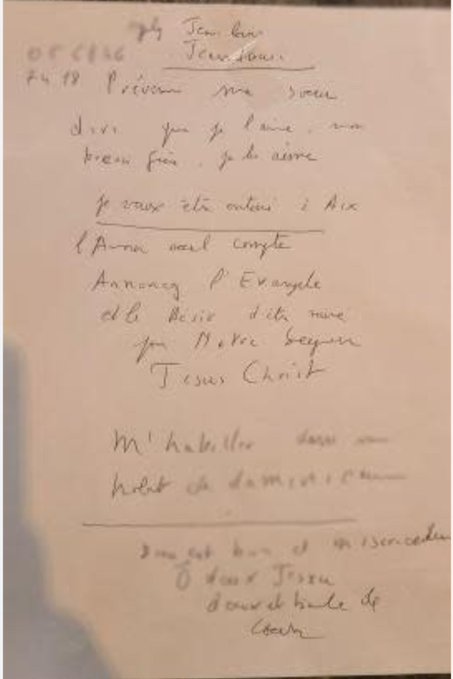 Jean Louis
Jean Louis
Prévenir ma soeur
dire que je l'aime, mon
beau frère, je les aime
je veux être enterré à Aix
l'Amour seul compte
Annoncez l'Evangile
et le désir d'être
par Notre Seigneur
Jesus Christ
M'habiller dans mon
habit de dominicain
est bon et misericordieux
Ô doux Jesus
doux et humble de
coeur